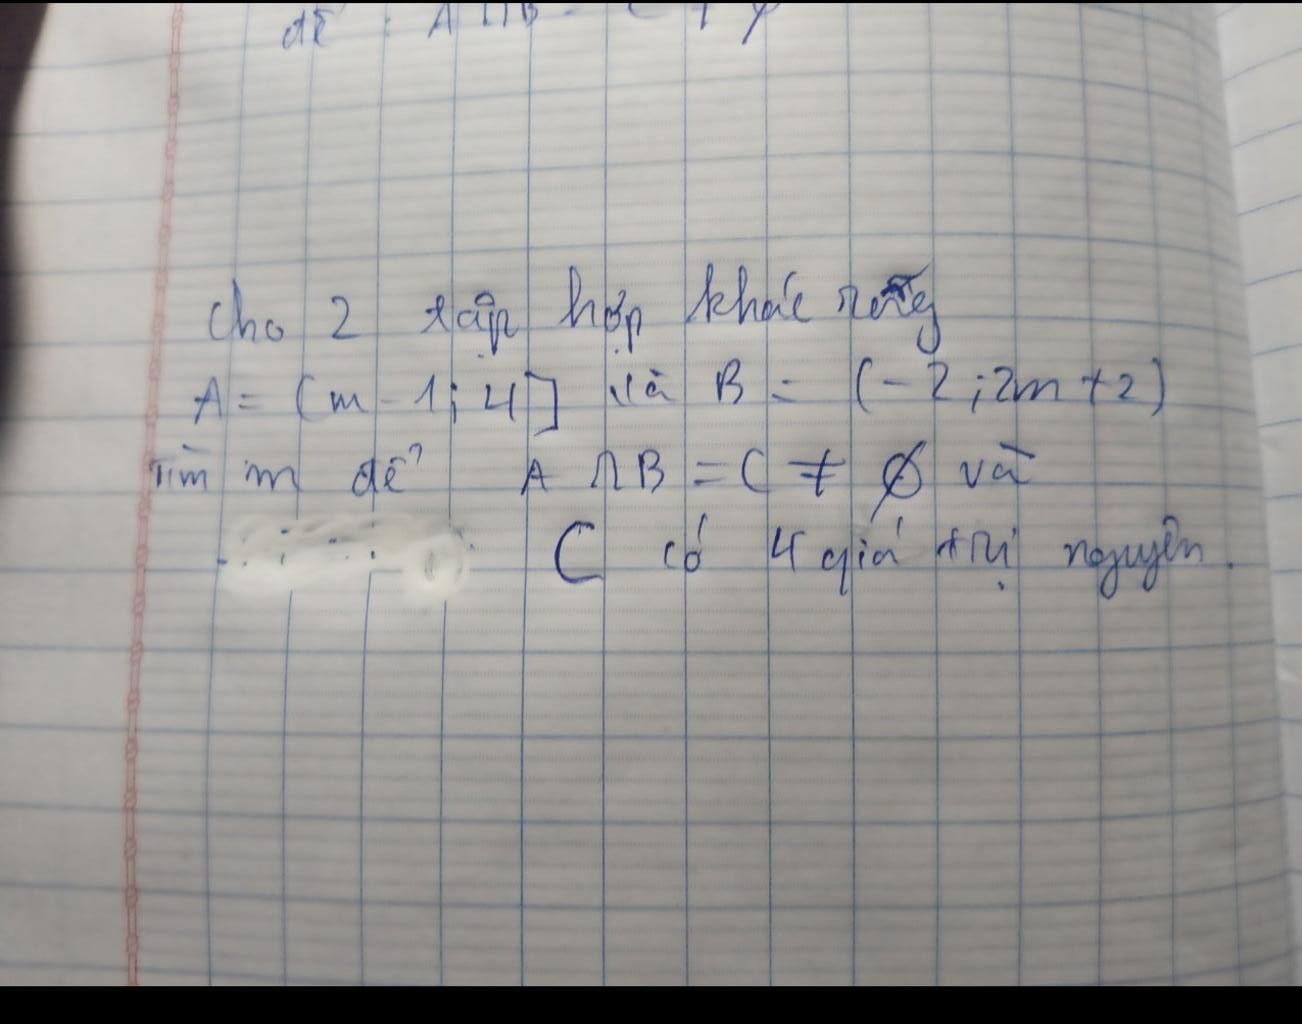 để : A ∩ B
Cho 2 tập hợp khác rỗng
A = (m - 1; 4] và B = (-2; 2m + 2)
Tìm m để A ∩ B = C ≠ ∅ và
C có 4 giá trị nguyên.